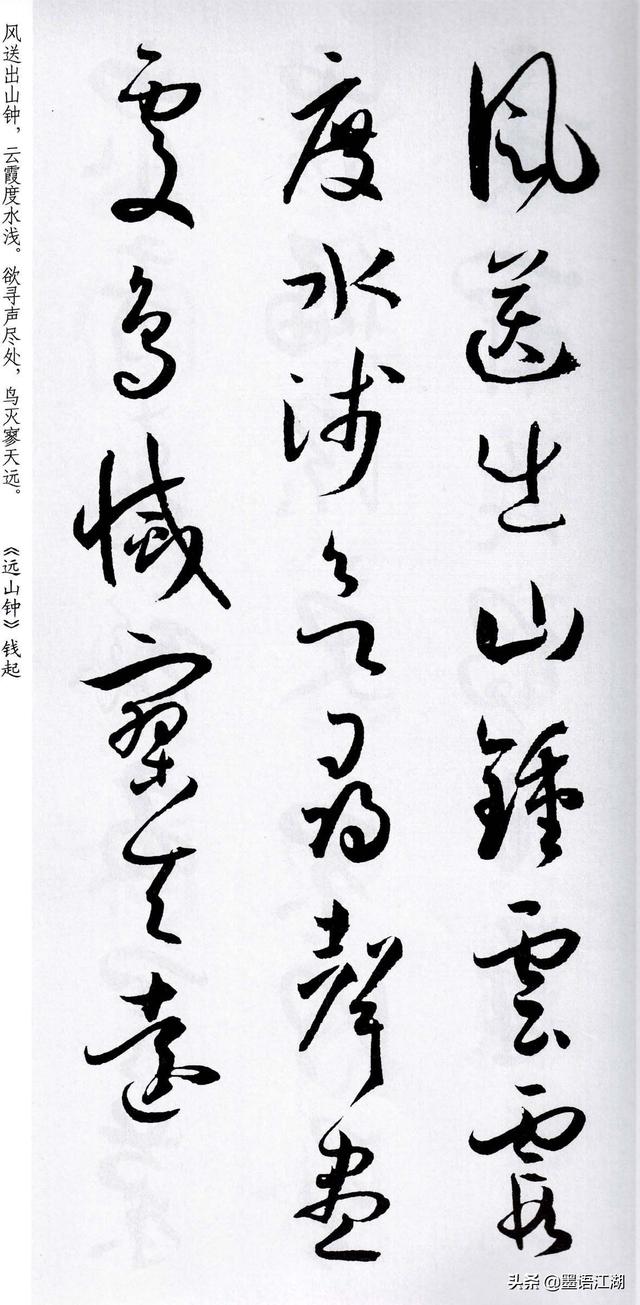 風送出山鍾雲霞
度水淺欲尋聲盡
處鳥滅寥天遠
风送出山钟，云霞度水浅。欲寻声尽处，鸟灭寥天远。 《远山钟》钱起
头条 @墨语江湖